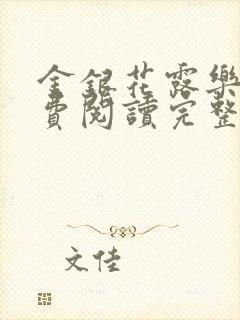 金銀花露樂
費閱讀完整
文佳